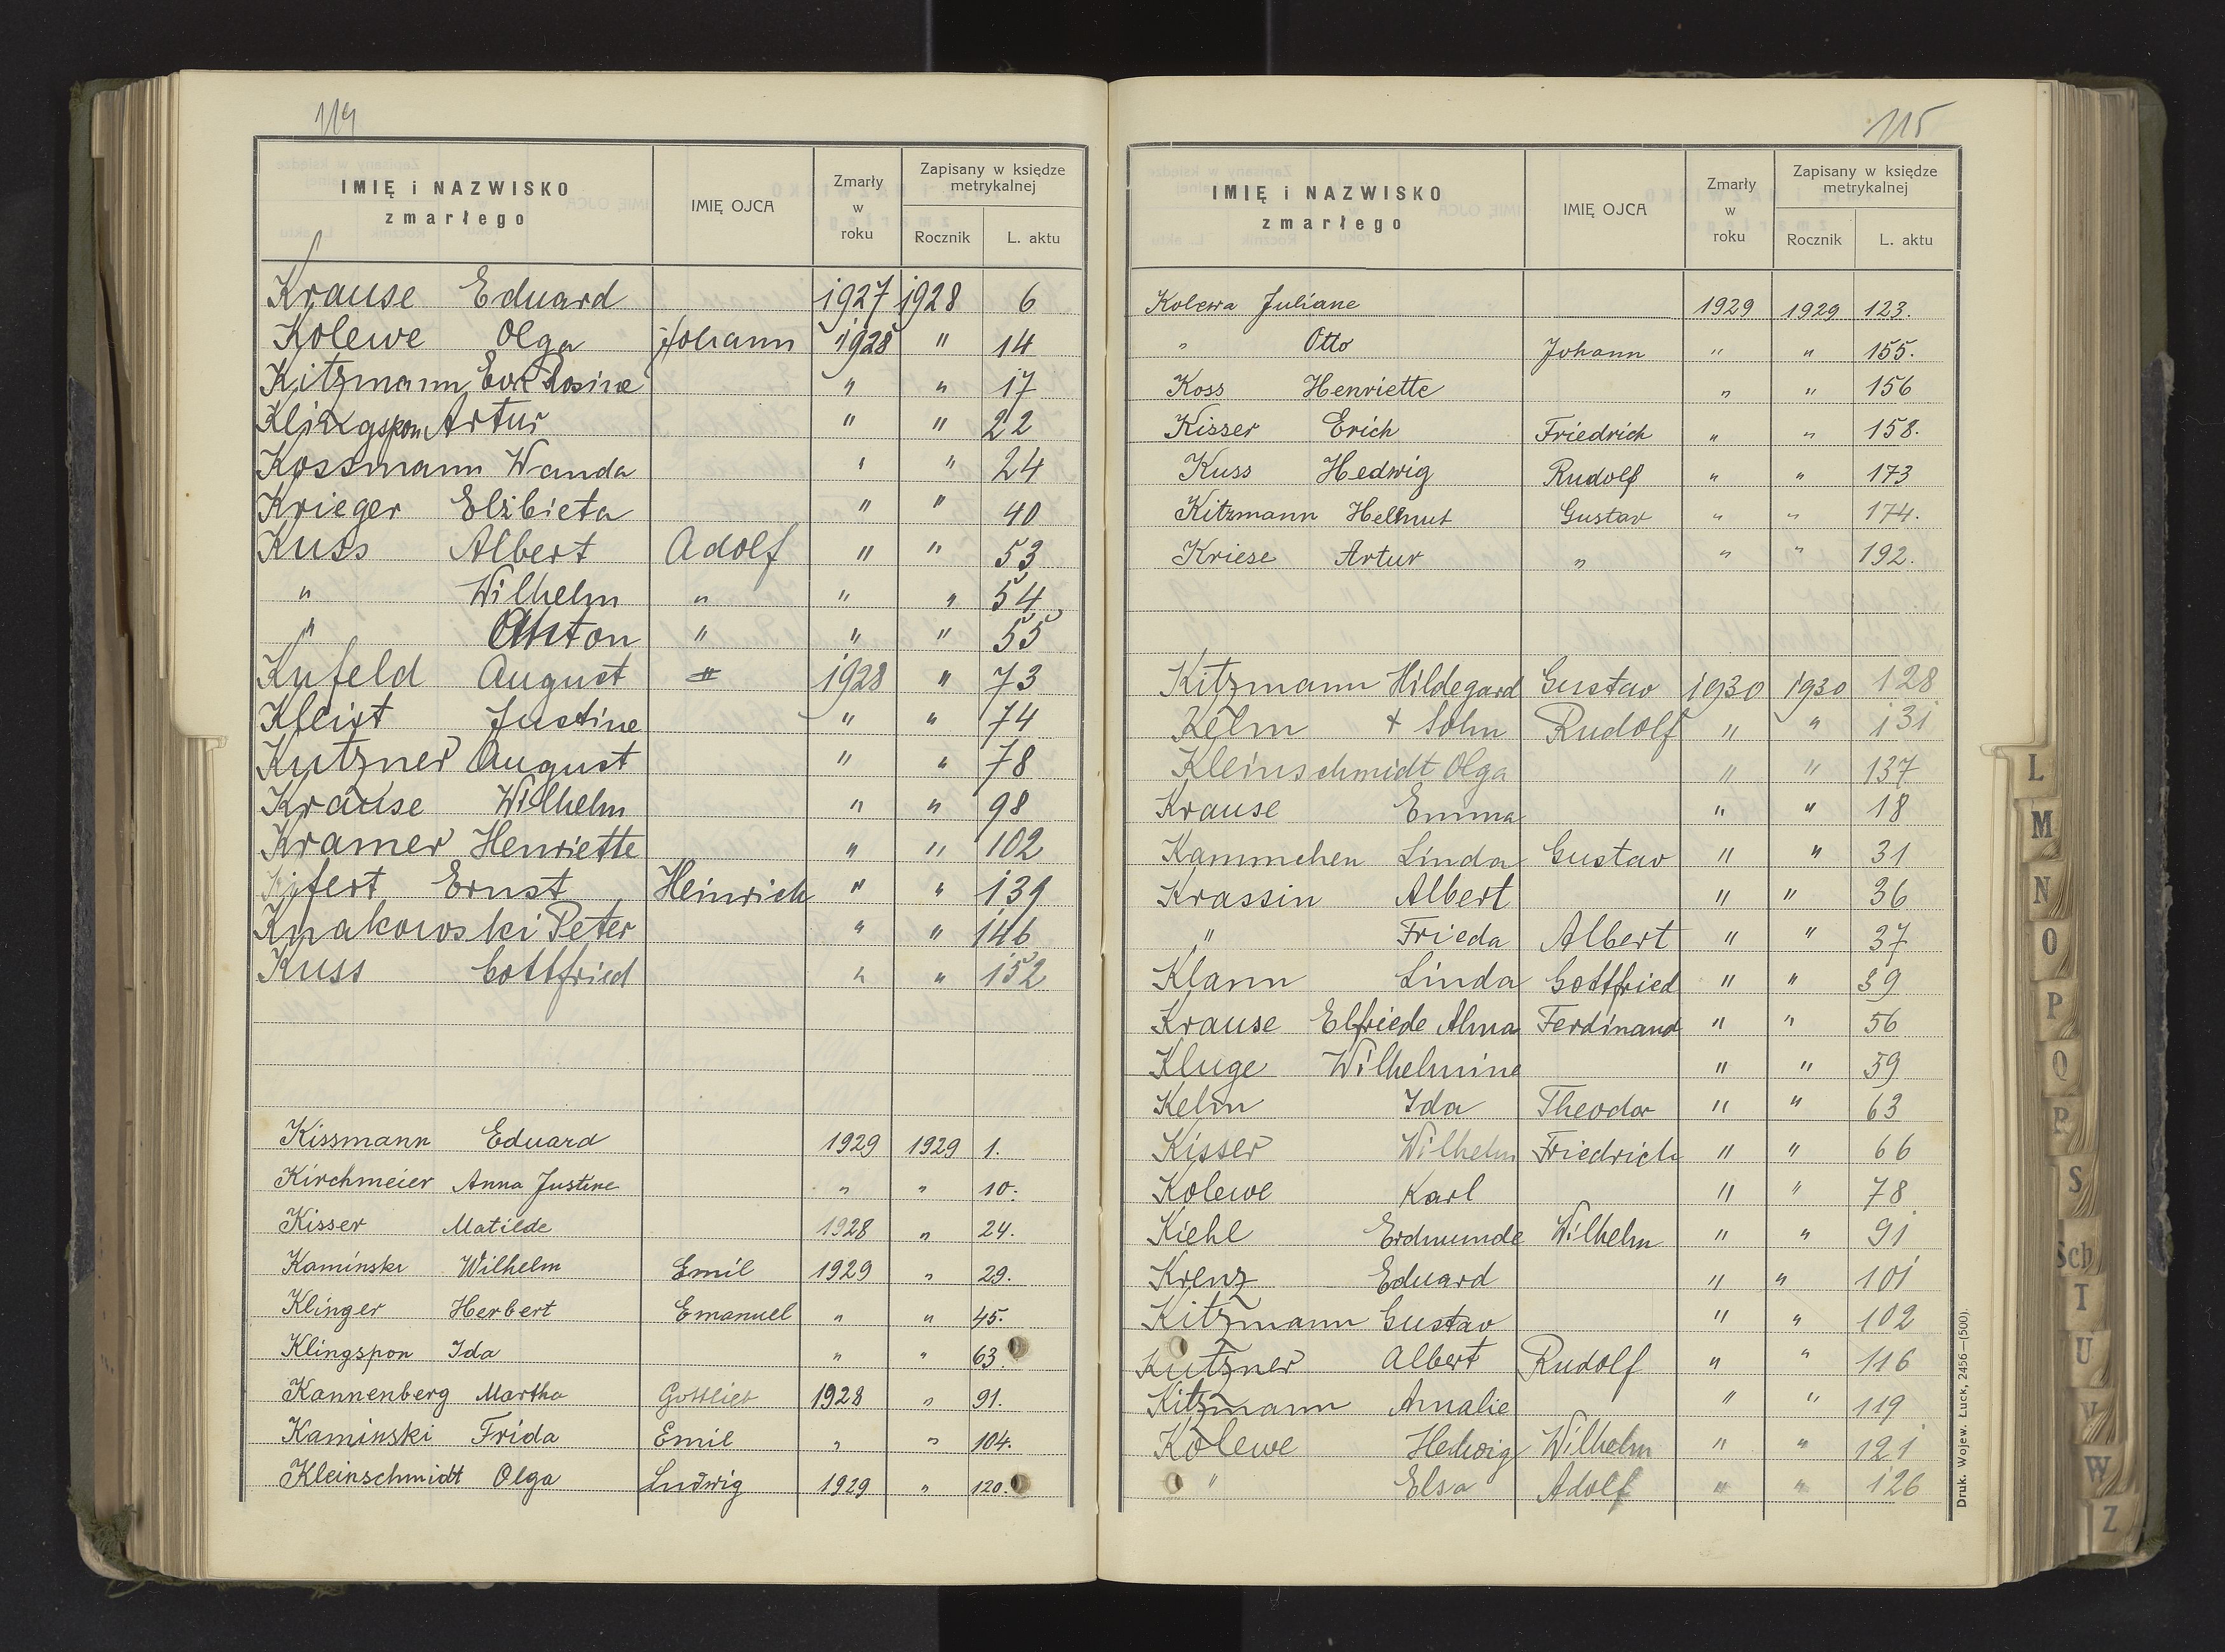 114
IMIĘ i NAZWISKO zmarłego IMIĘ OJCA Zmarły w roku Zapisany w księdze metrykalnej Rocznik L. aktu
Krause Eduard 1927 1928 6
Kolewe Olga Johann 1928 " 14
Kitzmann Eva Rosine " " 17
Klingspon Artur " " 22
Kossmann Wanda " " 24
Krieger Elżbieta " " 40
Kuss Albert Adolf " " 53
" Wilhelm " " " 54
" Anton " " " 55
Kufeld August 1928 " 73
Kleist Justine " " 74
Kutzner August " " 78
Krause Wilhelm " " 98
Kramer Henriette " " 102
Ernst Heinrich " " 139
Knakowski Peter " " 146
Kuss Gottfried " " 152
Kissmann Eduard 1929 1929 1.
Kirchmeier Anna Justine " " 10.
Kisser Matilde 1928 " 24.
Kaminski Wilhelm Emil 1929 " 29.
Klinger Herbert Emanuel " " 45.
Klingspon Ida " " 63
Kannenberg Martha Gottlieb 1928 " 91.
Kaminski Frida Emil " " 104.
Kleinschmidt Olga Ludwig 1929 " 120.
115
IMIĘ i NAZWISKO zmarłego IMIĘ OJCA Zmarły w roku Zapisany w księdze metrykalnej Rocznik L. aktu
Kolewa Juliane 1929 1929 123.
" Otto Johann " " 155.
Koss Henriette " " 156
Kisser Erich Friedrich " " 158.
Kuss Hedwig Rudolf " " 173
Kitzmann Helmut Gustav " " 174.
Kriese Artur " " " 192.
Kitzmann Hildegard Gustav 1930 1930 128
Kelm + Sohn Rudolf " " 131
Kleinschmidt Olga " " 137
Krause Emma " " 18
Kammchen Linda Gustav " " 31
Krassin Albert " " 36
" Frieda Albert " " 37
Klann Linda Gottfried " " 39
Krause Elfriede Alma Ferdinand " " 56
Kluge Wilhelmine " " 59
Kelm Ida Theodor " " 63
Kisser Wilhelm Friedrich " " 66
Kolewe Karl " " 78
Kiehl Erdmunde Wilhelm " " 91
Krenz Eduard " " 101
Kitzmann Gustav " " 102
Kutzner Albert Rudolf " " 116
Kitzmann Amalie " " 119
Kolewe Hedwig Wilhelm " " 121
" Elsa Adolf " " 126
Druk. Wojew. Łuck, 2456—(500).
L
M
N
O
P
Q
R
S
Sch
T
U
V
W
Z